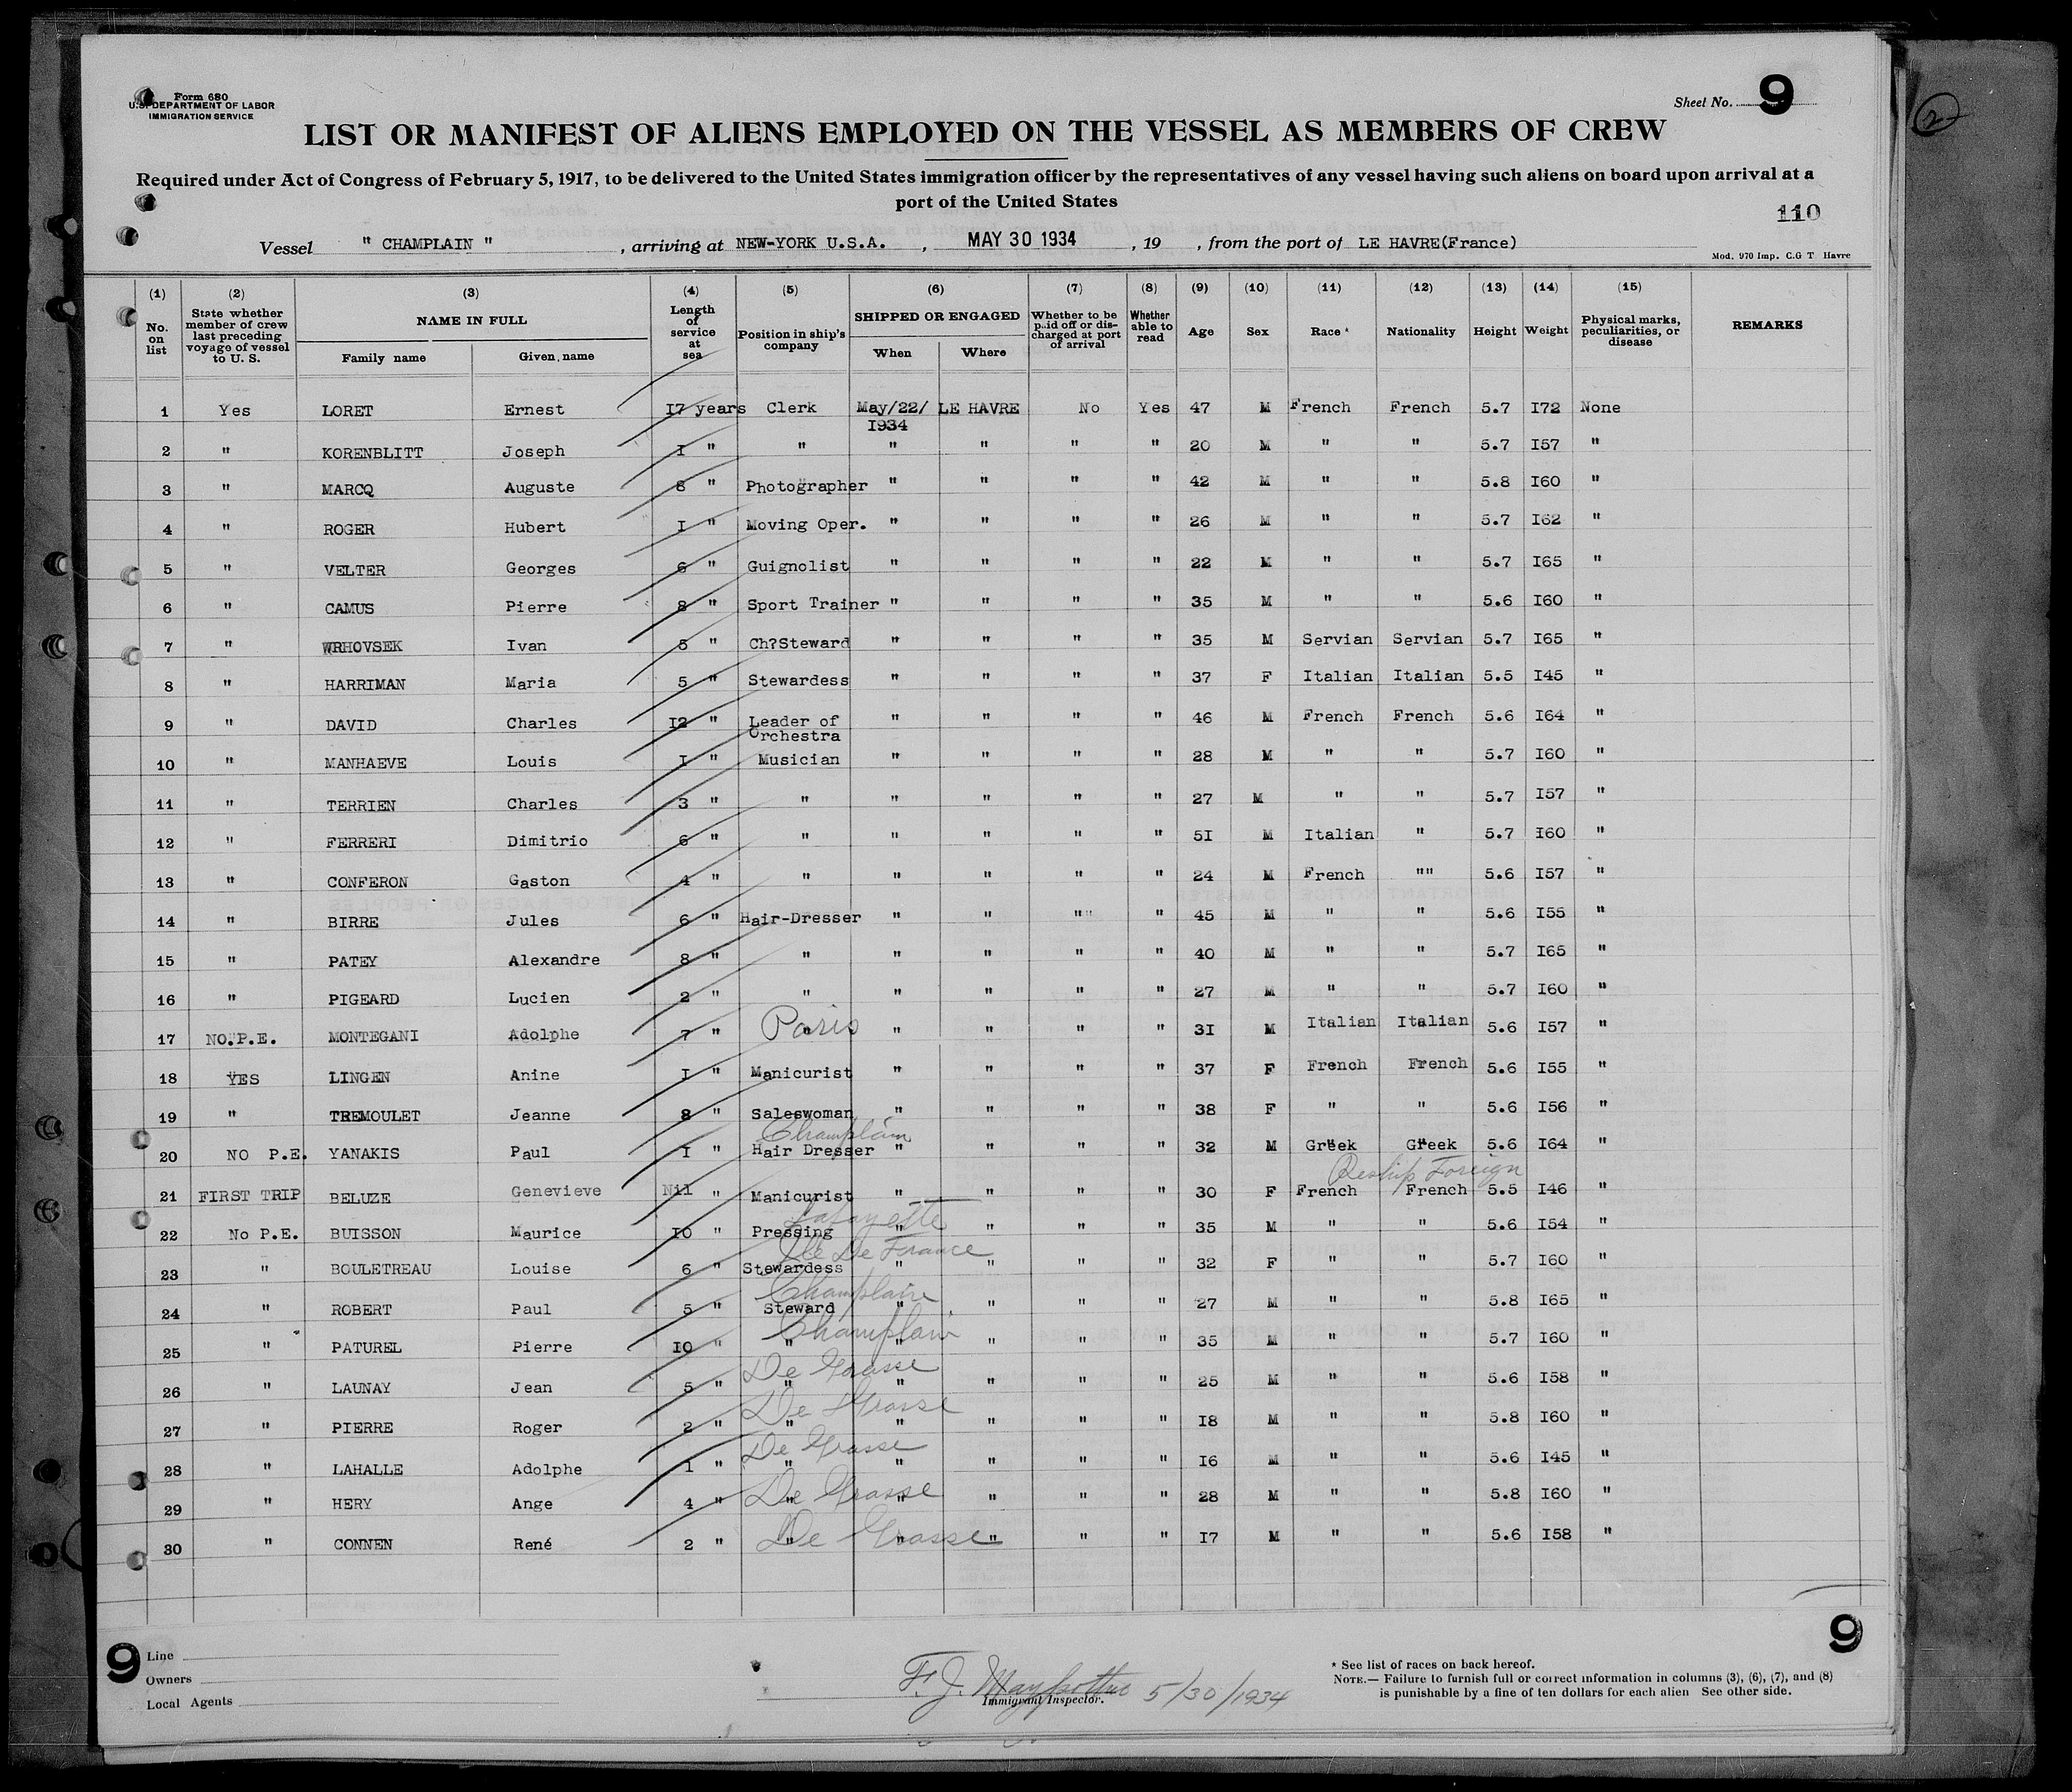 Form 680
U.S. DEPARTMENT OF LABOR
IMMIGRATION SERVICE
Sheet No. 9
2
LIST OR MANIFEST OF ALIENS EMPLOYED ON THE VESSEL AS MEMBERS OF CREW
Required under Act of Congress of February 5, 1917, to be delivered to the United States immigration officer by the representatives of any vessel having such aliens on board upon arrival at a
port of the United States
110
Vessel " CHAMPLAIN " , arriving at NEW-YORK U.S.A. , MAY 30 1934 , 19 , from the port of LE HAVRE(France)
Mod. 970 Imp. C.G T Havre
(1) No. on list (2) State whether member of crew last preceding voyage of vessel to U. S. (3) NAME IN FULL Family name Given name (4) Length of service at sea (5) Position in ship's company (6) SHIPPED OR ENGAGED When Where (7) Whether to be paid off or discharged at port of arrival (8) Whether able to read (9) Age (10) Sex (11) Race * (12) Nationality (13) Height (14) Weight (15) Physical marks, peculiarities, or disease REMARKS
1 Yes LORET Ernest I7 years Clerk May/22/ I934 LE HAVRE No Yes 47 M French French 5.7 I72 None
2 " KORENBLITT Joseph I " " " " " " 20 M " " 5.7 I57 "
3 " MARCQ Auguste 8 " Photographer " " " " 42 M " " 5.8 I60 "
4 " ROGER Hubert I " Moving Oper. " " " " 26 M " " 5.7 I62 "
5 " VELTER Georges 6 " Guignolist " " " " 22 M " " 5.7 I65 "
6 " CAMUS Pierre 8 " Sport Trainer " " " " 35 M " " 5.6 I60 "
7 " WRHOVSEK Ivan 5 " Ch?Steward " " " " 35 M Servian Servian 5.7 I65 "
8 " HARRIMAN Maria 5 " Stewardess " " " " 37 F Italian Italian 5.5 I45 "
9 " DAVID Charles I2 " Leader of Orchestra " " " " 46 M French French 5.6 I64 "
10 " MANHAEVE Louis I " Musician " " " " 28 M " " 5.7 I60 "
11 " TERRIEN Charles 3 " " " " " " 27 M " " 5.7 I57 "
12 " FERRERI Dimitrio 6 " " " " " " 5I M Italian " 5.7 I60 "
13 " CONFERON Gaston 4 " " " " " " 24 M French "" 5.6 I57 "
14 " BIRRE Jules 6 " Hair-Dresser " " "" " 45 M " " 5.6 I55 "
15 " PATEY Alexandre 8 " " " " " " 40 M " " 5.7 I65 "
16 " PIGEARD Lucien 2 " " " " " " 27 M " " 5.7 I60 "
17 NO.P.E. MONTEGANI Adolphe 7 " " Paris " " " " 3I M Italian Italian 5.6 I57 "
18 YES LINGEN Anine I " Manicurist " " " " 37 F French French 5.6 I55 "
19 " TREMOULET Jeanne 8 " Saleswoman " " " " 38 F " " 5.6 I56 "
Champlain
20 NO P.E. YANAKIS Paul I " Hair Dresser " " " " 32 M Greek Greek 5.6 I64 "
Reship Foreign
21 FIRST TRIP BELUZE Genevieve Nil " Manicurist " " " " 30 F French French 5.5 I46 "
Lafayette
22 No P.E. BUISSON Maurice I0 " Pressing " " " " 35 M " " 5.6 I54 "
Ile De France
23 " BOULETREAU Louise 6 " Stewardess " " " " 32 F " " 5.7 I60 "
Champlain
24 " ROBERT Paul 5 " Steward " " " " 27 M " " 5.8 I65 "
Champlain
25 " PATUREL Pierre I0 " " " " " " 35 M " " 5.7 I60 "
De Grasse
26 " LAUNAY Jean 5 " " " " " " 25 M " " 5.6 I58 "
De Grasse
27 " PIERRE Roger 2 " " " " " " I8 M " " 5.8 I60 "
De Grasse
28 " LAHALLE Adolphe 1 " " " " " " I6 M " " 5.6 I45 "
De Grasse
29 " HERY Ange 4 " " " " " " 28 M " " 5.8 I60 "
De Grasse
30 " CONNEN René 2 " " " " " " I7 M " " 5.6 I58 "
9
9
Line
Owners
Local Agents
F. J. 5/30/1934
Immigrant Inspector.
* See list of races on back hereof.
NOTE.— Failure to furnish full or correct information in columns (3), (6), (7), and (8)
is punishable by a fine of ten dollars for each alien See other side.